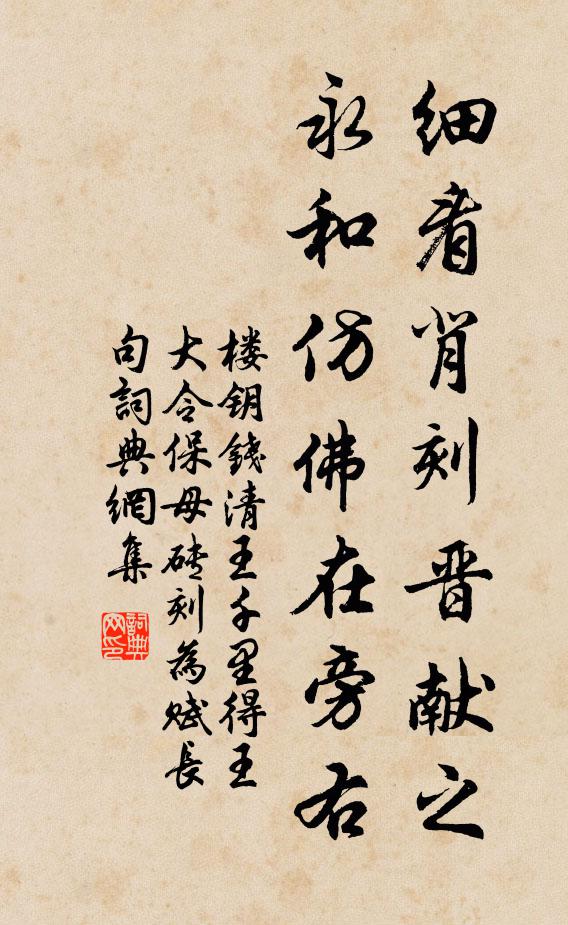 细看背刻晋献之
永和仿佛在旁右
楼钥钱清王千里得王
大令保母砖刻為赋長
句詞典網集
詞典网印